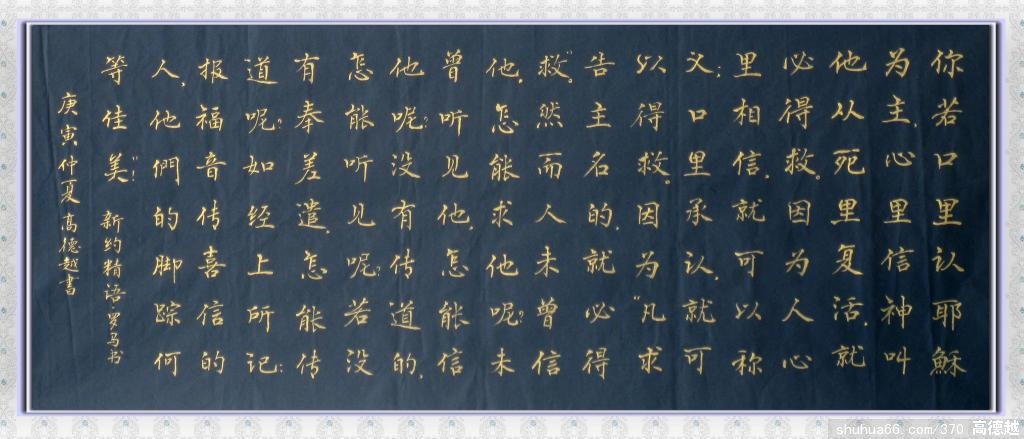 你若口里认耶穌
为主,心里信神叫
他从死里复活,就
必得救。因为人心
里相信,就可以称
义;口里承认,就可
以得救。因为“凡求
告主名的,就必得
救”。然而人未曾信
他,怎能求他呢?未
曾听见他,怎能信
他呢?没有传道的,
怎能听见呢?若没
有奉差遣,怎能传
道呢?如经上所记:
报福音传喜信的
人,他們的脚踪何
等佳美”! 新约精语·罗马书
庚寅仲夏高德越書
shuhua66.com/370 高德越